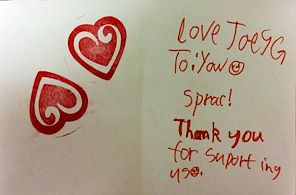 Love Joe9G
To: You
Sprac!
Thank you
for suport ing
us.